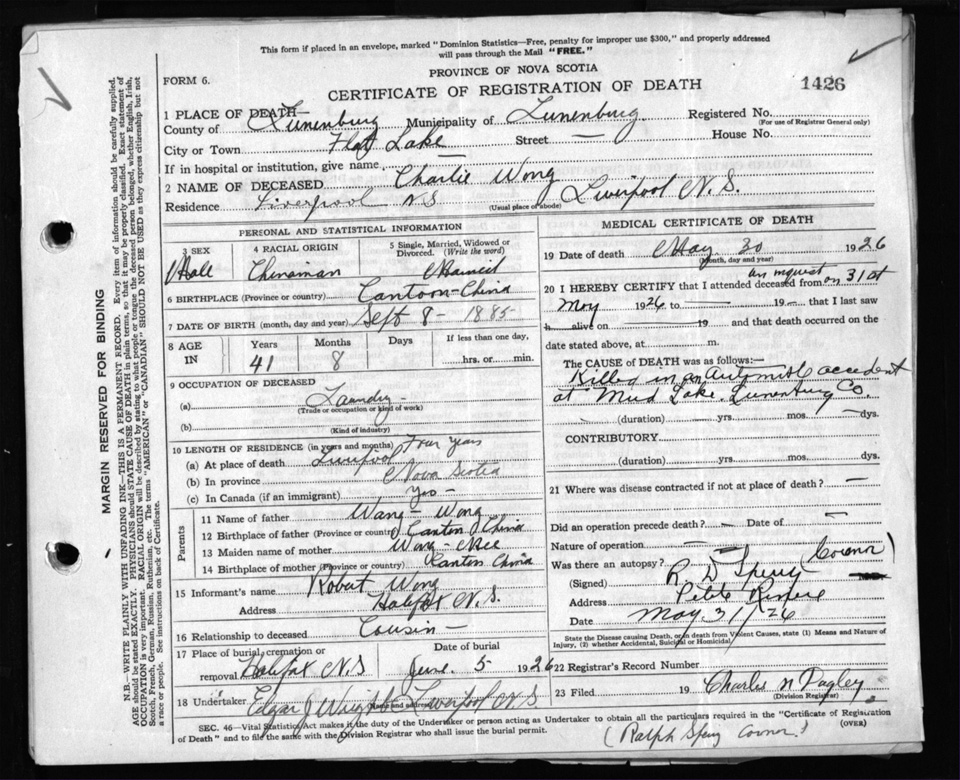 This form if placed in an envelope, marked "Dominion Statistics—Free, penalty for improper use $300," and properly addressed
will pass through the Mail "FREE."
PROVINCE OF NOVA SCOTIA
FORM 6.
CERTIFICATE OF REGISTRATION OF DEATH
1426
1 PLACE OF DEATH—
County of Lunenburg Municipality of Lunenburg Registered No.
(For use of Registrar General only)
City or Town Lake Street — House No.
If in hospital or institution, give name —
2 NAME OF DECEASED Charlie Wong
Residence Liverpool NS (Usual place of abode) Liverpool N.S.
PERSONAL AND STATISTICAL INFORMATION
3 SEX
Male
4 RACIAL ORIGIN
Chinaman
5 Single, Married, Widowed or
Divorced. (Write the word)
6 BIRTHPLACE (Province or country) Cantoon-China
7 DATE OF BIRTH (month, day and year) Sept 8 - 1885
8 AGE IN
Years 41
Months 8
Days
If less than one day,
hrs. or min.
9 OCCUPATION OF DECEASED
(a) Laundry -
(Trade or occupation or kind of work)
(b)
(Kind of industry)
10 LENGTH OF RESIDENCE (in years and months)
(a) At place of death Liverpool Four Years
(b) In province Nova Scotia
(c) In Canada (if an immigrant) Yes -
Parents
11 Name of father Wang - Wong
12 Birthplace of father (Province or country) Canton China
13 Maiden name of mother Wong -
14 Birthplace of mother (Province or country) Canton China
15 Informant's name Robert Wong
Address Halifax N.S.
16 Relationship to deceased Cousin -
17 Place of burial, cremation or
removal Halifax N.S
Date of burial
June 5 1926
18 Undertaker Edgar J Wright Liverpool N S
(Name and address)
MEDICAL CERTIFICATE OF DEATH
19 Date of death May 30 1926
(Month, day and year)
20 I HEREBY CERTIFY that I attended deceased from an inquest on 31st
May 1926 to — 19 — that I last saw
h alive on — 19 — and that death occurred on the
date stated above, at m.
The CAUSE OF DEATH was as follows:—
Killed in an Automobile accident
at Mud Lake. Lunenburg Co.
(duration) yrs. mos. — dys.
CONTRIBUTORY
(duration) yrs. mos. dys.
21 Where was disease contracted if not at place of death? —
Did an operation precede death? — Date of —
Nature of operation —
Was there an autopsy? — (Coronor)
(Signed) R D Sperry
Address Petite Riviere
Date May 31/26
State the Disease causing Death, or in death from Violent Causes, state (1) Means and Nature of
Injury, (2) whether Accidental, Suicidal or Homicidal
22 Registrar's Record Number
23 Filed 19 Charles N
(Division Registrar)
SEC. 46—Vital Statistics Act makes it the duty of the Undertaker or person acting as Undertaker to obtain all the particulars required in the "Certificate of Registration
of Death" and to file the same with the Division Registrar who shall issue the burial permit.
(OVER)
(Ralph Coronor.)
MARGIN RESERVED FOR BINDING
N.B.—WRITE PLAINLY WITH UNFADING INK—THIS IS A PERMANENT RECORD. Every item of information should be carefully supplied.
AGE should be stated EXACTLY. PHYSICIANS should STATE CAUSE OF DEATH in plain terms, so that it may be properly classified. Exact statement of
OCCUPATION is very important. RACIAL ORIGIN will be described by stating to what people or tongue the deceased person belonged, whether English, Irish,
Scotch, French, German, Russian, Ruthenian, etc. The terms "AMERICAN" or "CANADIAN" SHOULD NOT BE USED as they express citizenship but not
a race or people. See instructions on back of Certificate.